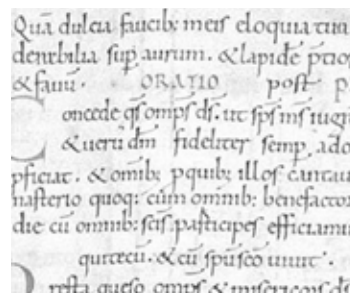 Quā dulcia faucib; meis eloquia tua
derabilia sup aurum. & lapidē ptio
& fauū. ORATIO post p
Concede qs omps ds. ut sps ms iugit
& uerū dm̄ fideliter semp ado
pficiat. & omib; p quib; illos cantaui
nasterio quoq; cum omnib; benefactor
die cū omnib; scis. participes efficiamu
qui tecū. & cū spu sco uiuit.
resta queso omps & misericors ds